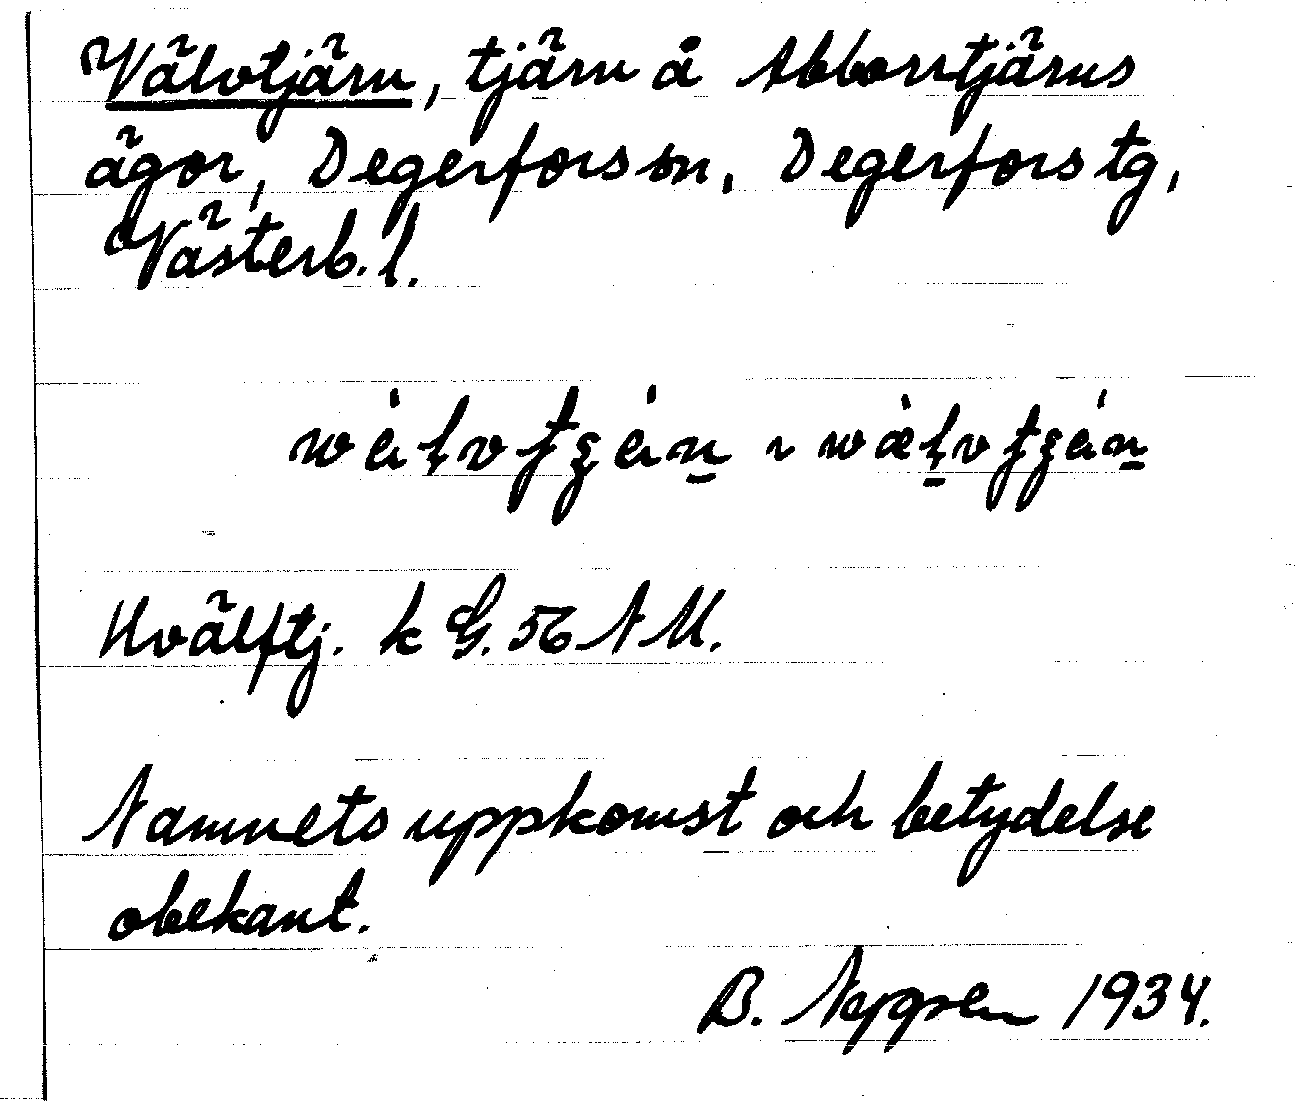 Välvtjärn, tjärn å Abborrtjärns
ägor, Degerfors sn, Degerfors tg,
Västerb. l.
Hvälftj. k G. 56 NM.
Namnets uppkomst och betydelse
obekant.
B. 1934.